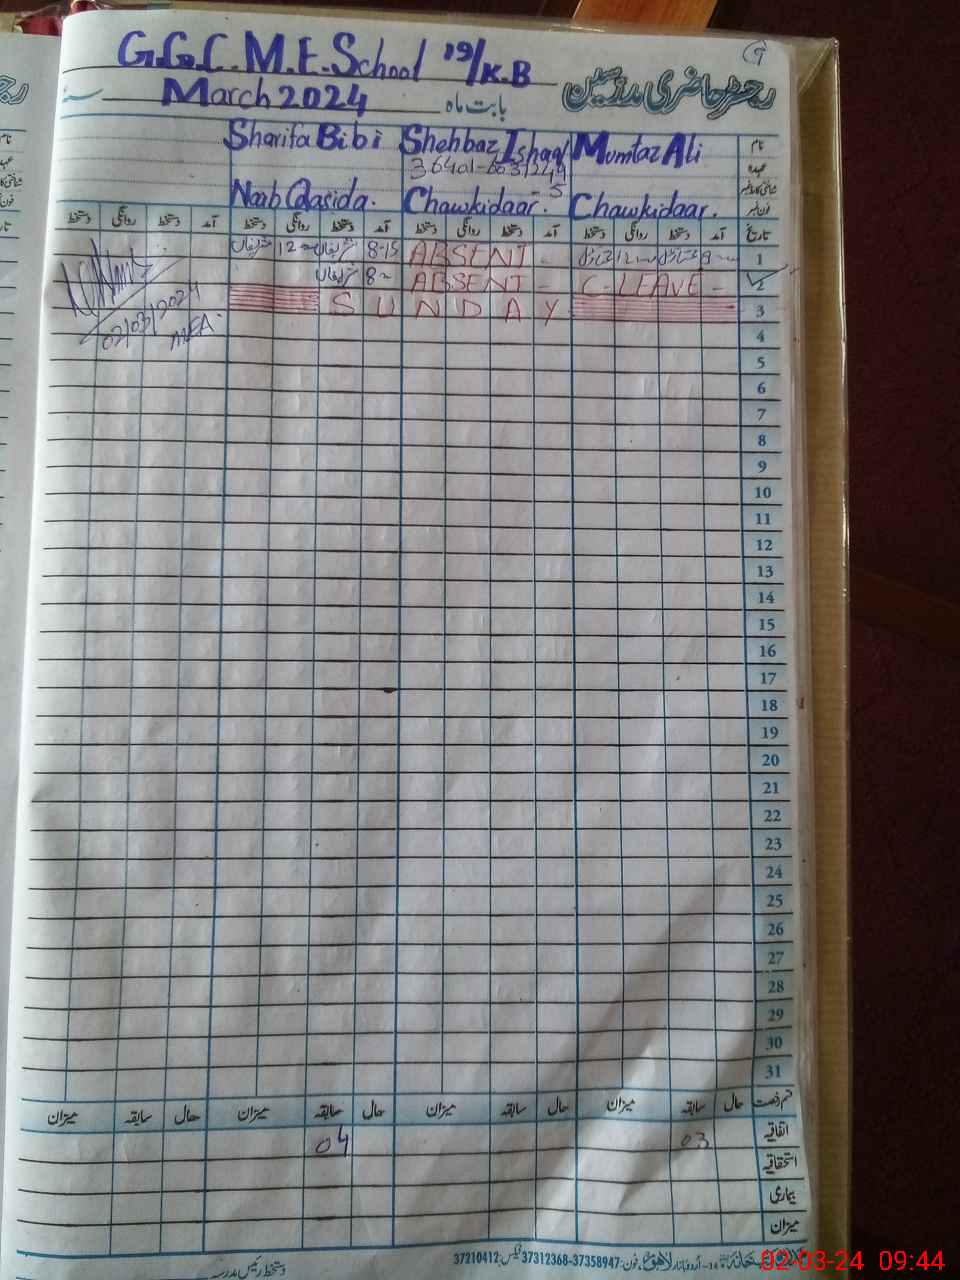 G.G.C.M.E.School 19/K.B
رجسٹر حاضری مدرسین
March 2024 بابت ماہ
Sharifa Bibi Shehbaz Ishaq Mumtaz Ali نام
عہدہ
شناختی کارڈ نمبر
Naib Qasida. Chawkidaar. Chawkidaar. فون نمبر
تاریخ آمد دستخط روانگی دستخط آمد دستخط روانگی دستخط آمد دستخط روانگی دستخط آمد دستخط روانگی دستخط
8-15 12 ABSENT - 12 1
8 ABSENT - C-LEAVE - 2
SUNDAY 3
02/03/2024
4
5
6
7
8
9
10
11
12
13
14
15
16
17
18
19
20
21
22
23
24
25
26
27
28
29
30
31
قسم رخصت حال سابقہ میزان حال سابقہ میزان حال سابقہ میزان حال سابقہ میزان
اتفاقیہ 03 04
استحقاقیہ
بیماری
میزان
دستخط رئیس مدرسہ
14-اُردو بازار لاہور فون:37358947-37312368 فیکس:37210412
02-03-24 09:44